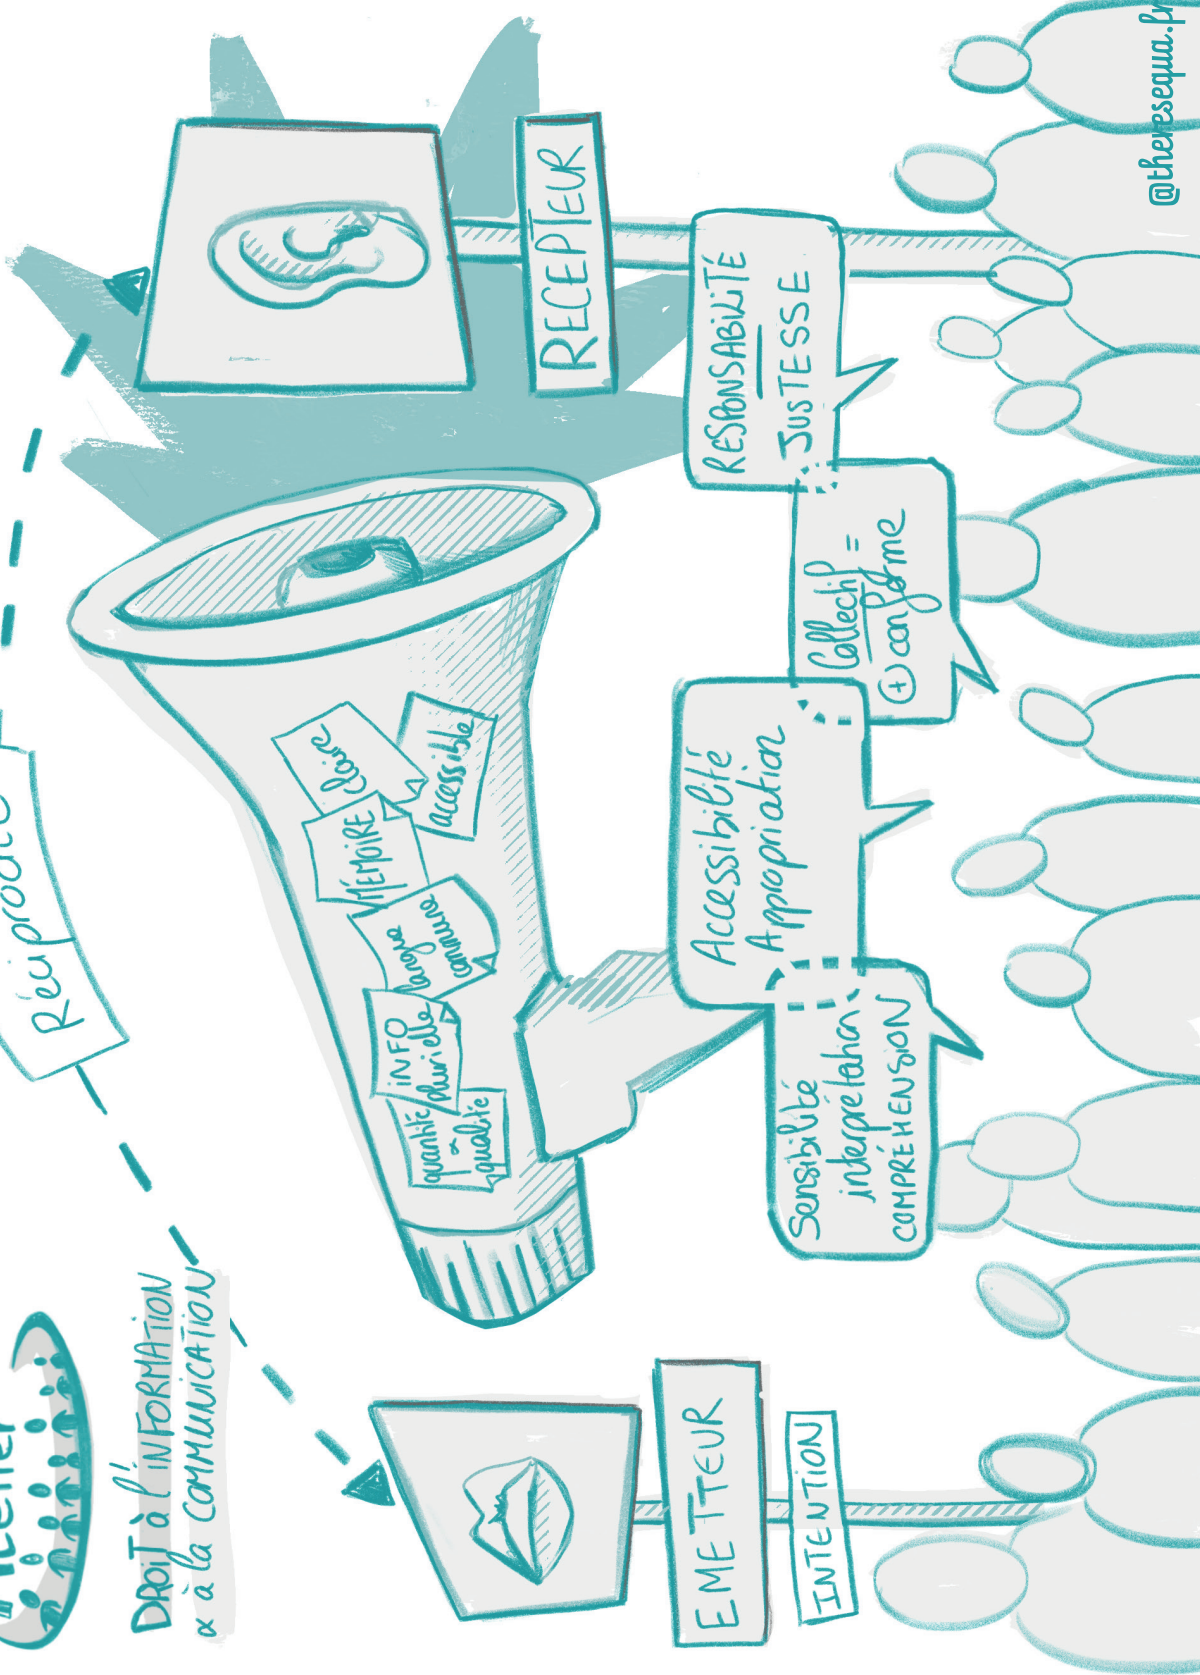 Atelier
DROIT à l'INFORMATION
& à la COMMUNICATION
Réciprocité
EMETTEUR
INTENTION
quantité
&
qualité
INFO
plurielle
langue
commune
MÉMOIRE
claire
accessible
RECEPTEUR
Sensibilité
interprétation
COMPRÉHENSION
Accessibilité
Appropriation
Collectif =
+ conforme
RESPONSABILITÉ
JUSTESSE
@theresequa.fr